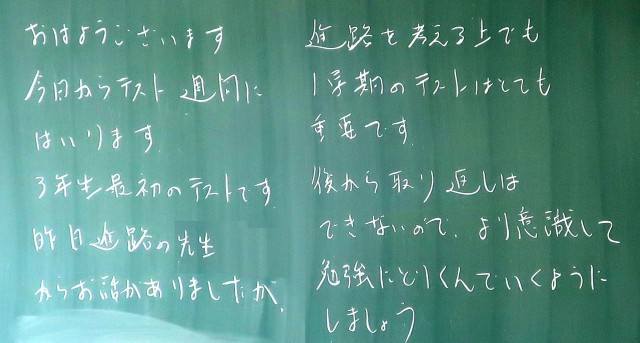 おはようございます
今日からテスト週間に
はいります。
3年生最初のテストです。
昨日進路の先生
からお話がありましたが、
進路を考える上でも
1学期のテストはとても
重要です。
後から取り返しは
できないので、より意識して
勉強にとりくんでいくように
しましょう